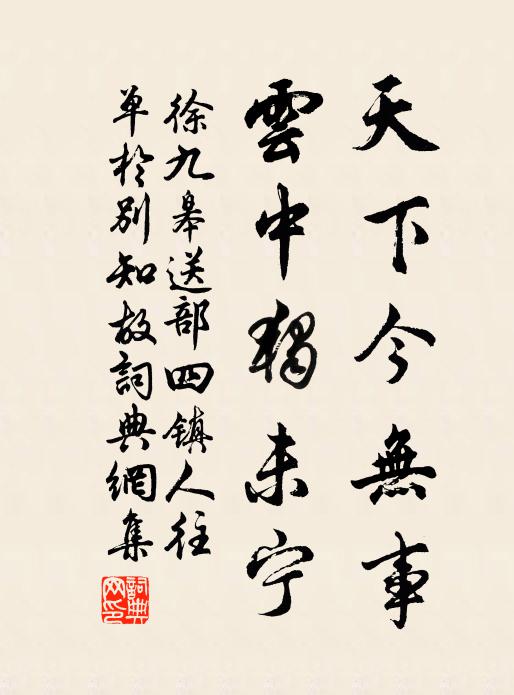 天下今無事
雲中獨未宁
徐九皋送部四鎮人往
单於別知故詞典網集
詞典
網印